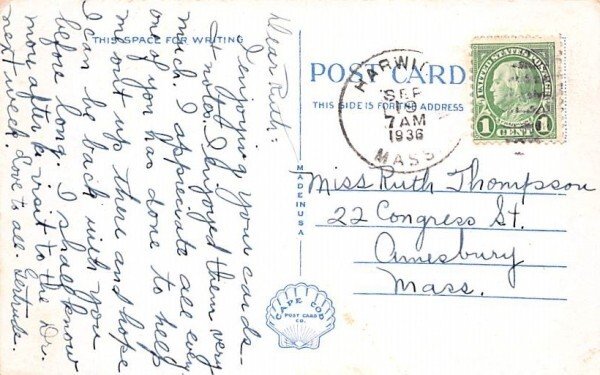 THIS SPACE FOR WRITING
Dear Ruth:
I enjoying your cards
+ notes. I enjoyed them very
much. I appreciate all every
one of you has done to help
me out up there and hope
I can be back with you
before long. I shall know
more after a visit to the Dr.
next week. Love to all. Gertrude.
POST CARD
THIS SIDE IS FOR THE ADDRESS
HARWI
SEP
7 AM
1936
MASS
UNITED STATES POSTAGE
1 CENT 1
MADE IN USA
Miss Ruth Thompson
22 Congress St.
Amesbury
Mass.
CAPE COD
POST CARD
CO.